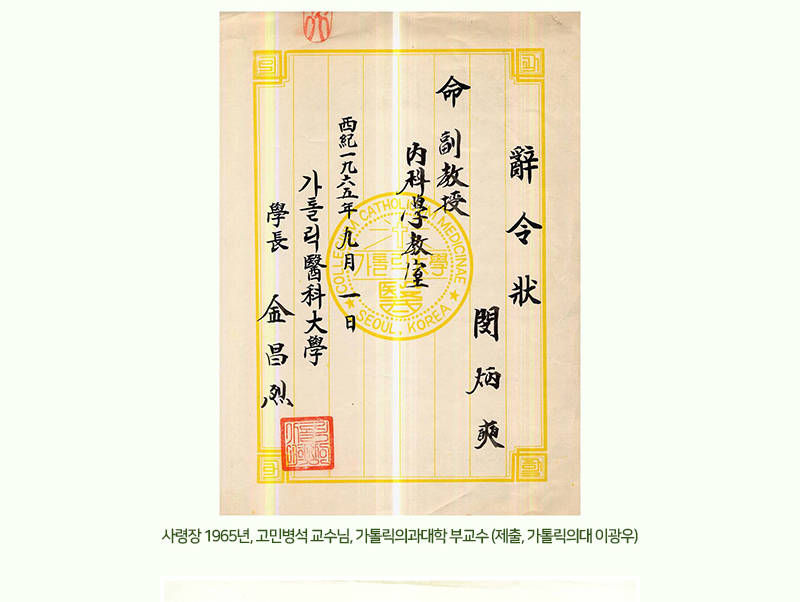 辭令狀
閔炳奭
命 副教授
內科學教室
西紀一九六五年九月一日
가톨릭醫科大學
學長 金昌烈
COLLEGIUM CATHOLICUM MEDICINAE
가톨릭大學
醫
SEOUL, KOREA
사령장 1965년, 고민병석 교수님, 가톨릭의과대학 부교수 (제출, 가톨릭의대 이광우)